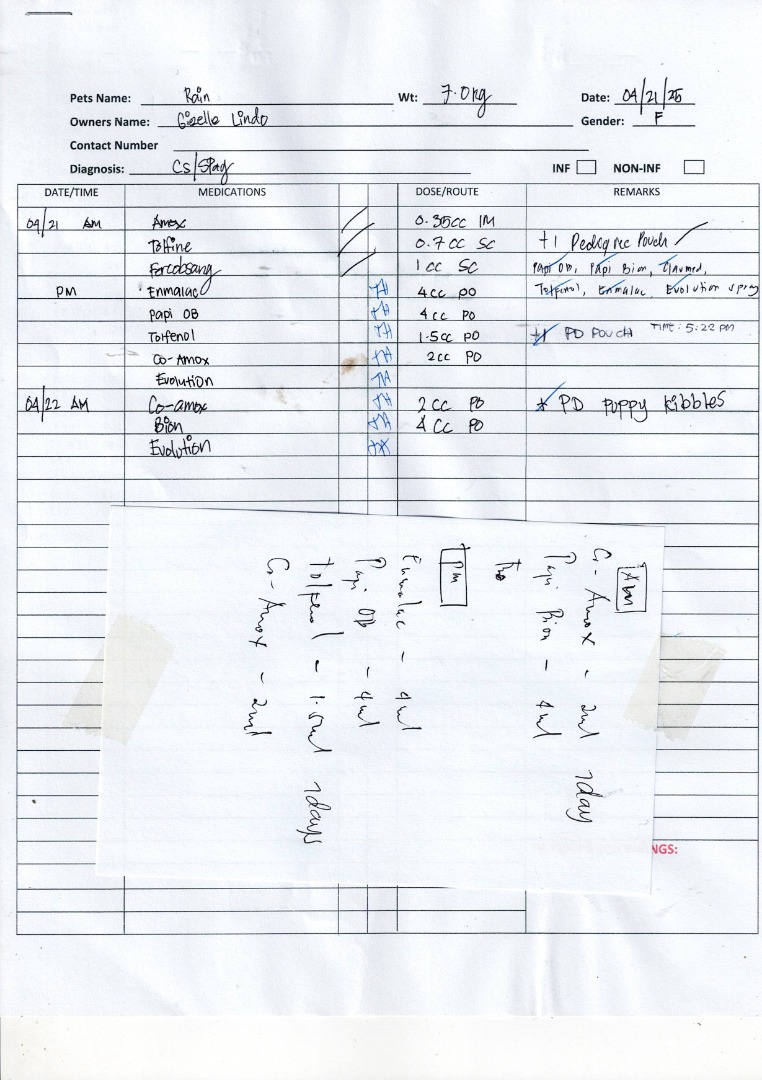 Pets Name: Rain Wt: 7.0kg Date: 04/21/25
Owners Name: Giselle Lindo Gender: F
Contact Number
Diagnosis: CS/Spay INF NON-INF
DATE/TIME MEDICATIONS DOSE/ROUTE REMARKS
04/21 AM Amox 0.35cc IM
Tolfine 0.7 cc SC +1 Pedigree Pouch
Fercobsang 1 cc SC Papi OB, Papi Bion, Clavmed,
PM Enmalac 4cc PO Tolfenol, Enmalac, Evolution spray
Papi OB 4cc PO
Tolfenol 1.5cc PO +1 PD POUCH TIME: 5:22 PM
Co-Amox 2cc PO
Evolution
04/22 AM Co-amox 2cc PO * PD Puppy Kibbles
Bion 4 cc PO
Evolution
Co-Amox - 2ml 7day
Papi Bion - 4ml
PM
Enmalac - 4ml
Papi OB - 4ml
Tolfenol - 1.5ml 7days
Co-Amox - 2ml
NGS: